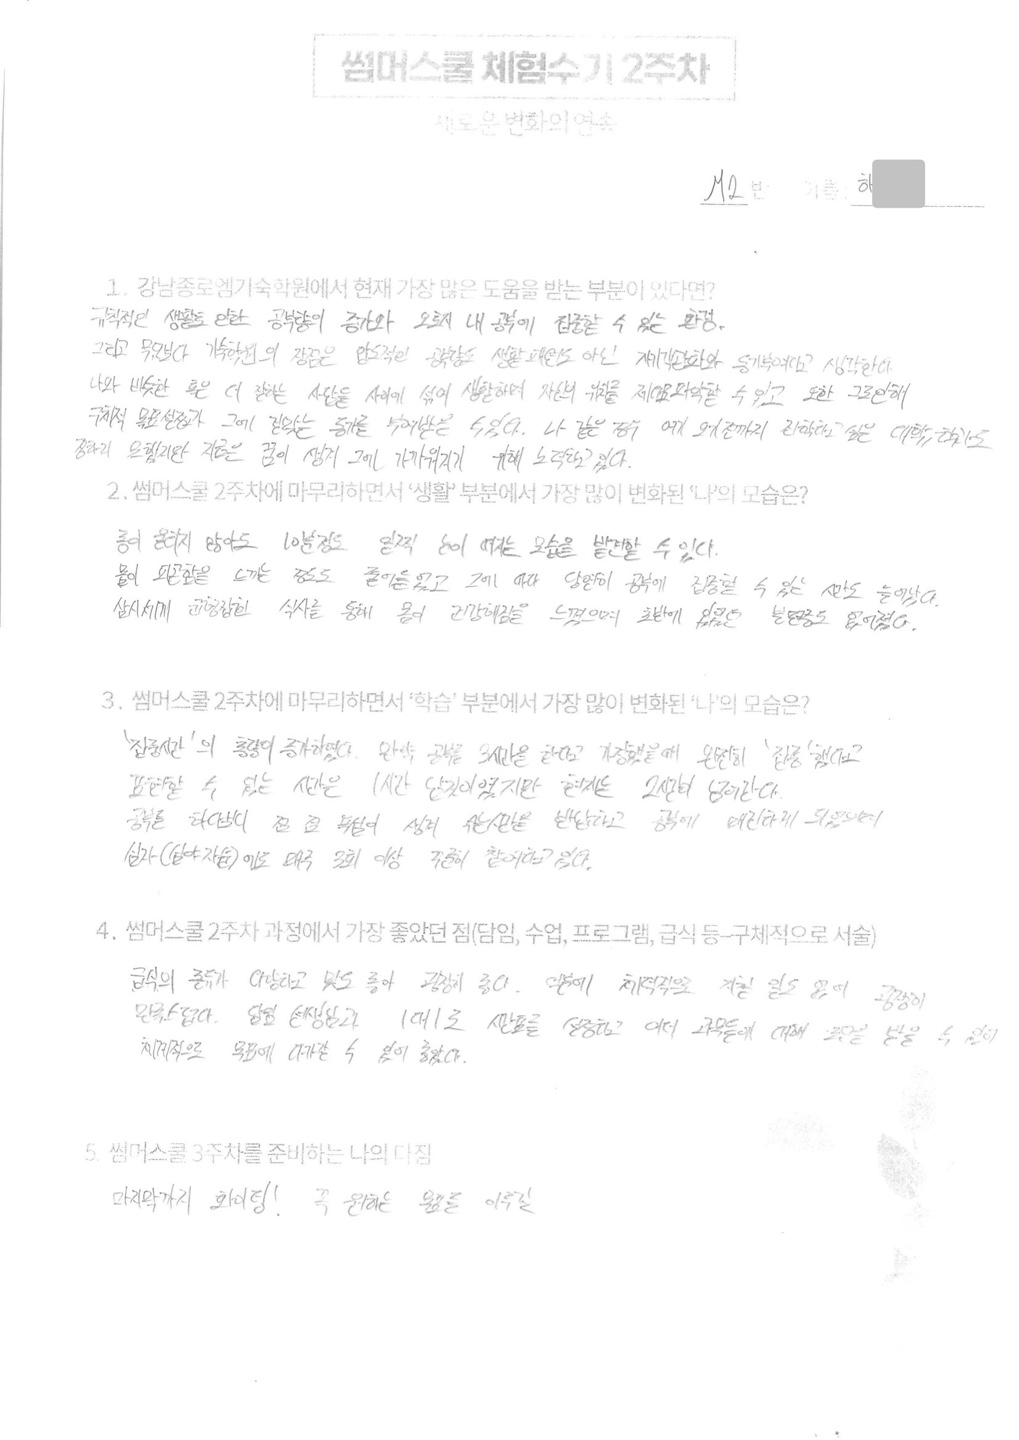 썸머스쿨 체험수기 2주차
새로운 변화의 연속
M2 반 이름: 하
1. 강남종로엠기숙학원에서 현재 가장 많은 도움을 받는 부분이 있다면?
규칙적인 생활로 인한 공부량의 증가와 오로지 내 공부에 집중할 수 있는 환경.
그리고 무엇보다 기숙학원의 장점은 압도적인 공부량도 생활패턴도 아닌 자기객관화와 동기부여라고 생각한다
나와 비슷한 혹은 더 잘하는 사람들 사이에 섞여 생활하며 자신의 위치를 제대로 파악할 수 있고 또한 그로 인해
구체적 목표설정과 그에 걸맞는 동기를 부여받을 수 있다. 나 같은 경우 여기 오기 전까지 진학하고 싶은 대학, 학과도
흐릿했지만 지금은 꿈이 생겨 그에 가까워지기 위해 노력하고 있다.
2. 썸머스쿨 2주차에 마무리하면서 '생활' 부분에서 가장 많이 변화된 '나'의 모습은?
종이 울리지 않아도 10분정도 일찍 눈이 떠지는 모습을 발견할 수 있다.
몸이 피곤함을 느끼는 정도도 줄어들었고 그에 따라 당연히 공부에 집중할 수 있는 시간도 늘어났다.
삼시세끼 균형잡힌 식사를 통해 몸이 건강해짐을 느꼈으며 초반에 있었던 불면증도 없어졌다.
3. 썸머스쿨 2주차에 마무리하면서 '학습' 부분에서 가장 많이 변화된 '나'의 모습은?
'집중시간'의 총량이 증가하였다. 만약 공부를 3시간을 한다고 가정했을때 온전히 '집중'했다고
표현할 수 있는 시간은 1시간 남짓이었지만 현재는 2시간이 넘어간다.
공부를 하다보니 점점 욕심이 생겨 쉬는시간을 반납하고 공부에 매진하게 되었으며
심자(심야자습)에도 매주 3회 이상 꾸준히 참여하고 있다.
4. 썸머스쿨 2주차 과정에서 가장 좋았던 점(담임, 수업, 프로그램, 급식 등-구체적으로 서술)
급식의 종류가 다양하고 맛도 좋아 굉장히 좋다. 덕분에 체력적으로 지칠 일도 없어 굉장히
만족스럽다. 담임 선생님과 1대1로 시간표를 설정하고 여러 과목들에 대해 조언을 받을 수 있어
체계적으로 목표에 다가갈 수 있어 좋았다.
5. 썸머스쿨 3주차를 준비하는 나의 다짐
마지막까지 화이팅! 꼭 원하는 목표를 이루길